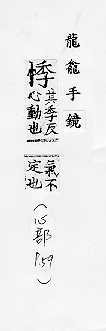 龍龕手鏡
悸
其季反
心動也
氣不
定也
(心部P.59)